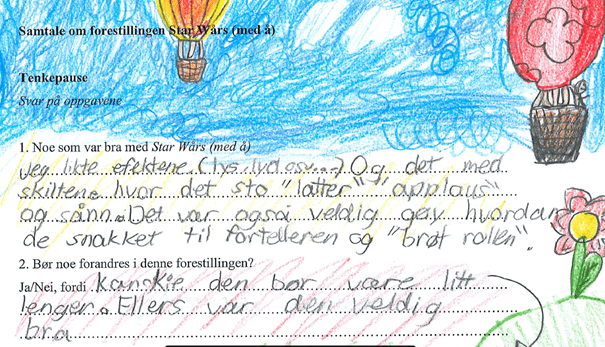 Samtale om forestillingen Star Wårs (med å)
Tenkepause
Svar på oppgavene
1. Noe som var bra med Star Wårs (med å)
jeg likte efektene (lys, lyd osv...) Og det med
skiltene hvor det sto "latter" "applaus"
og sånn. Det var også veldig gøy hvordan
de snakket til fortelleren og "brøt rollen".
2. Bør noe forandres i denne forestillingen?
Ja/Nei, fordi kanskje den bør være litt
lenger. Ellers var den veldig
bra